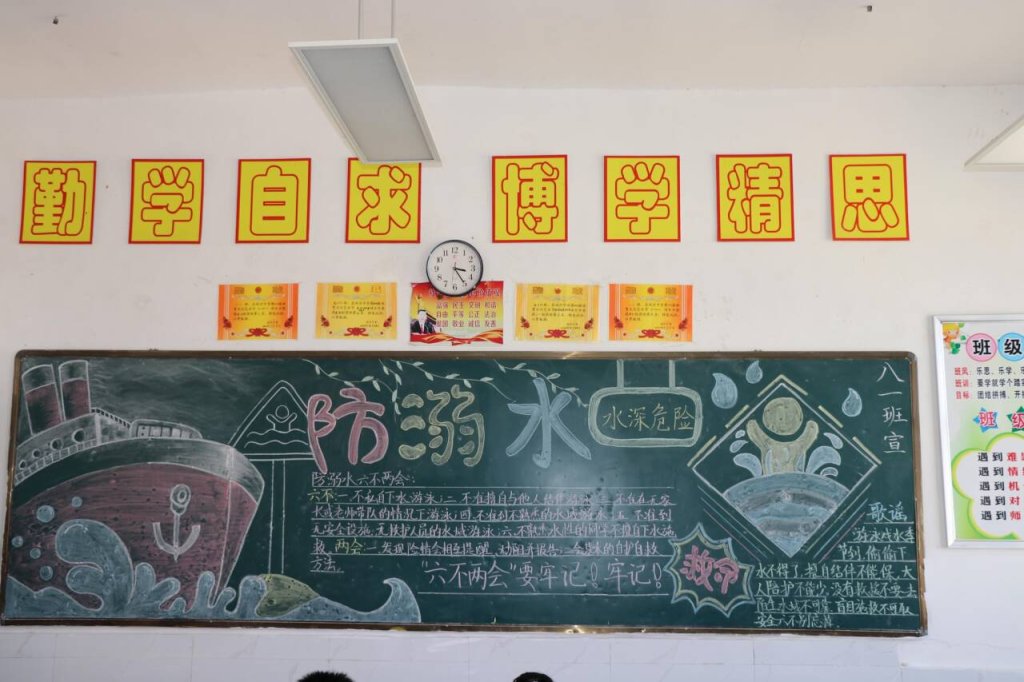 勤学自求 博学精思
富强 民主 文明 和谐
自由 平等 公正 法治
爱国 敬业 诚信 友善
防溺水
水深危险
八一班宣
防溺水六不两会:
六不:一不私自下水游泳;二不准擅自与他人结伴游泳;三不在无家
长或老师带队的情况下游泳;四不准到不熟悉的水域游泳;五不准到
无安全设施、无救护人员的水域游泳;六不熟悉水性的同学不擅自下水施
救。两会:一发现险情会相互提醒、劝阻并报告;二会基本的自护自救
方法。
"六不两会"要牢记!牢记!
救命
歌谣
游泳戏水季
节到,偷偷下
水不得了,擅自结伴不能保,大
人陪护不能少,没有救援不要去
陌生水域不可靠,盲目施救不可取
安全六不别忘
班级
班风:乐思、乐学、乐
班训:要学就学个踏
目标:团结拼搏、开
班级
遇到难
遇到情
遇到机
遇到对
遇到师